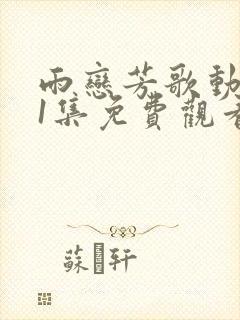 雨戀芳歌動
1集免費觀看
蘇 轩